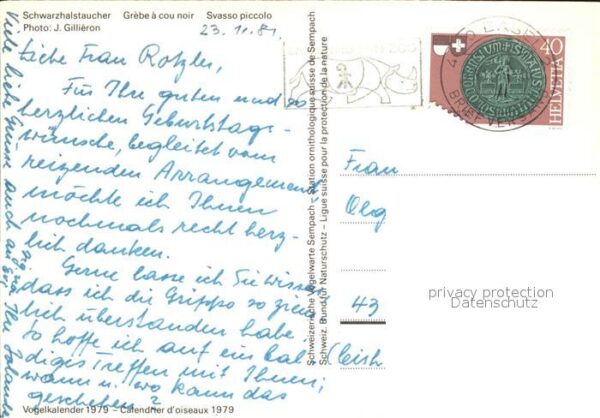 Schwarzhalstaucher Grèbe à cou noir Svasso piccolo
Photo: J. Gilliéron
23.11.81
Liebe Frau Rotzler,
Für Ihre guten und so
herzlichen Geburtstags-
wünsche, begleitet vom
reizenden Arrangement,
möchte ich Ihnen
nochmals recht herz-
lich danken.
Gerne lasse ich Sie wissen
dass ich die Grippe so ziem
lich überstanden habe.
So hoffe ich auf ein bal-
diges Treffen mit Ihnen;
wann u. wo kann das
geschehen?
Viele liebe Grüsse auch an
Ihre Jolanda
Vogelkalender 1979 – Calendrier d'oiseaux 1979
Schweizerische Vogelwarte Sempach – Station ornithologique suisse de Sempach
Schweiz. Bund für Naturschutz – Ligue suisse pour la protection de la nature
ZOO
BASEL
BRIEFVERSAND
40
HELVETIA
Frau
Olg
43
privacy protection
Datenschutz